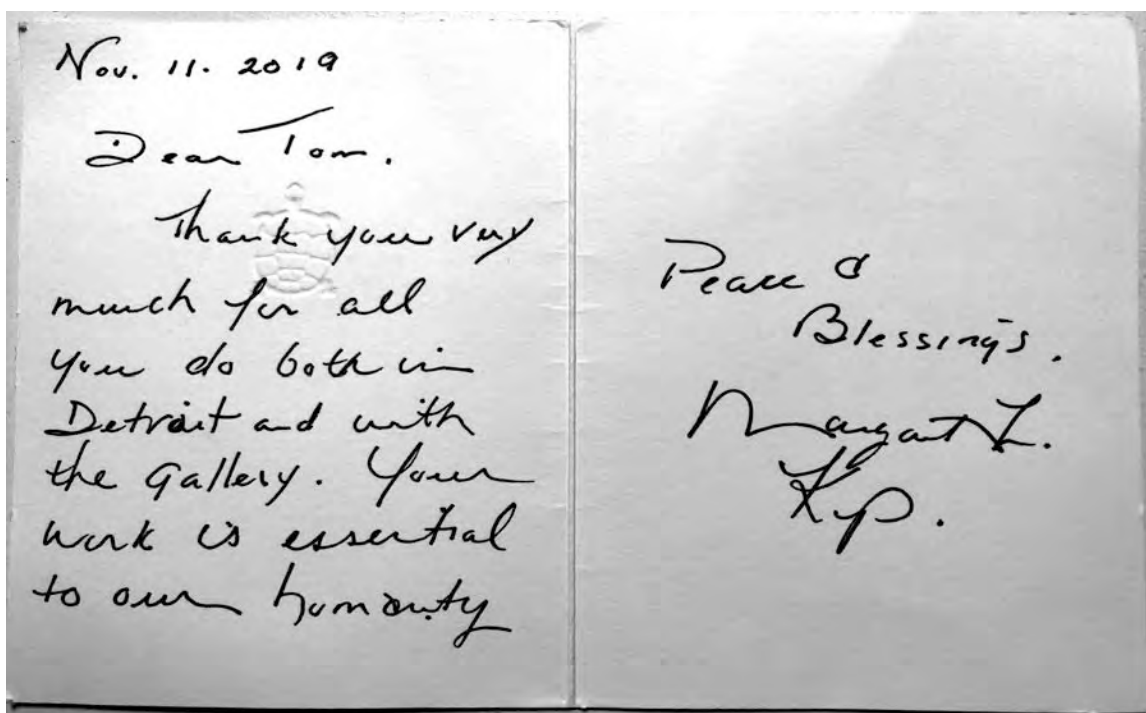 Nov. 11. 2019
Dear Tom.
Thank you very
much for all
you do both in
Detroit and with
the Gallery. Your
work is essential
to our humanity
Peace &
Blessings.
Margaret L.